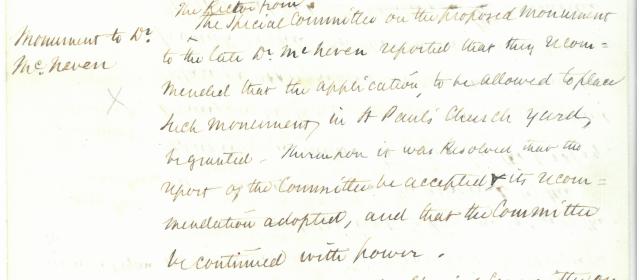 The Rector from
Monument to Dr
Mc.Neven
The Special Committee on the proposed Monument
to the late Dr. McNeven reported that they recom=
mended that the application, to be allowed to place
such Monument, in St Paul's Church Yard,
be granted - Thereupon it was Resolved that the
report of the Committee be accepted & its recom=
mendation adopted, and that the Committee
be continued with power.